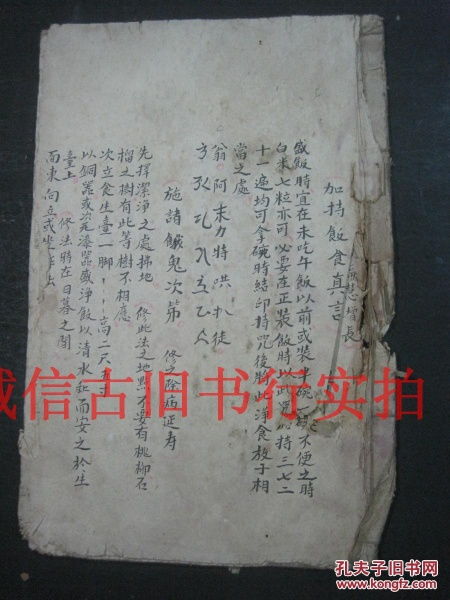 加持飯食真言
悲增長
盛飯時宜在未吃午飯以前或裝半碗一不便之時
白米七粒亦可必要在正裝飯時以此咒加持三七二
十一遍均可拿碗時結印持咒後將此淨食放于相
當之處
翁阿末力特哄扒徒
施諸餓鬼次第 修之除病延寿
先擇潔淨之處掃地 修此法之地點不要有桃柳石
榴之樹有此等樹不相應
次立食生臺一脚高二尺五寸
以銅器或瓷漆器盛淨飯以清水和而安之於生
臺上 修法時在日暮之間
面東向立或坐
誠信古旧书行实拍
孔夫子旧书网
www.kongfz.com